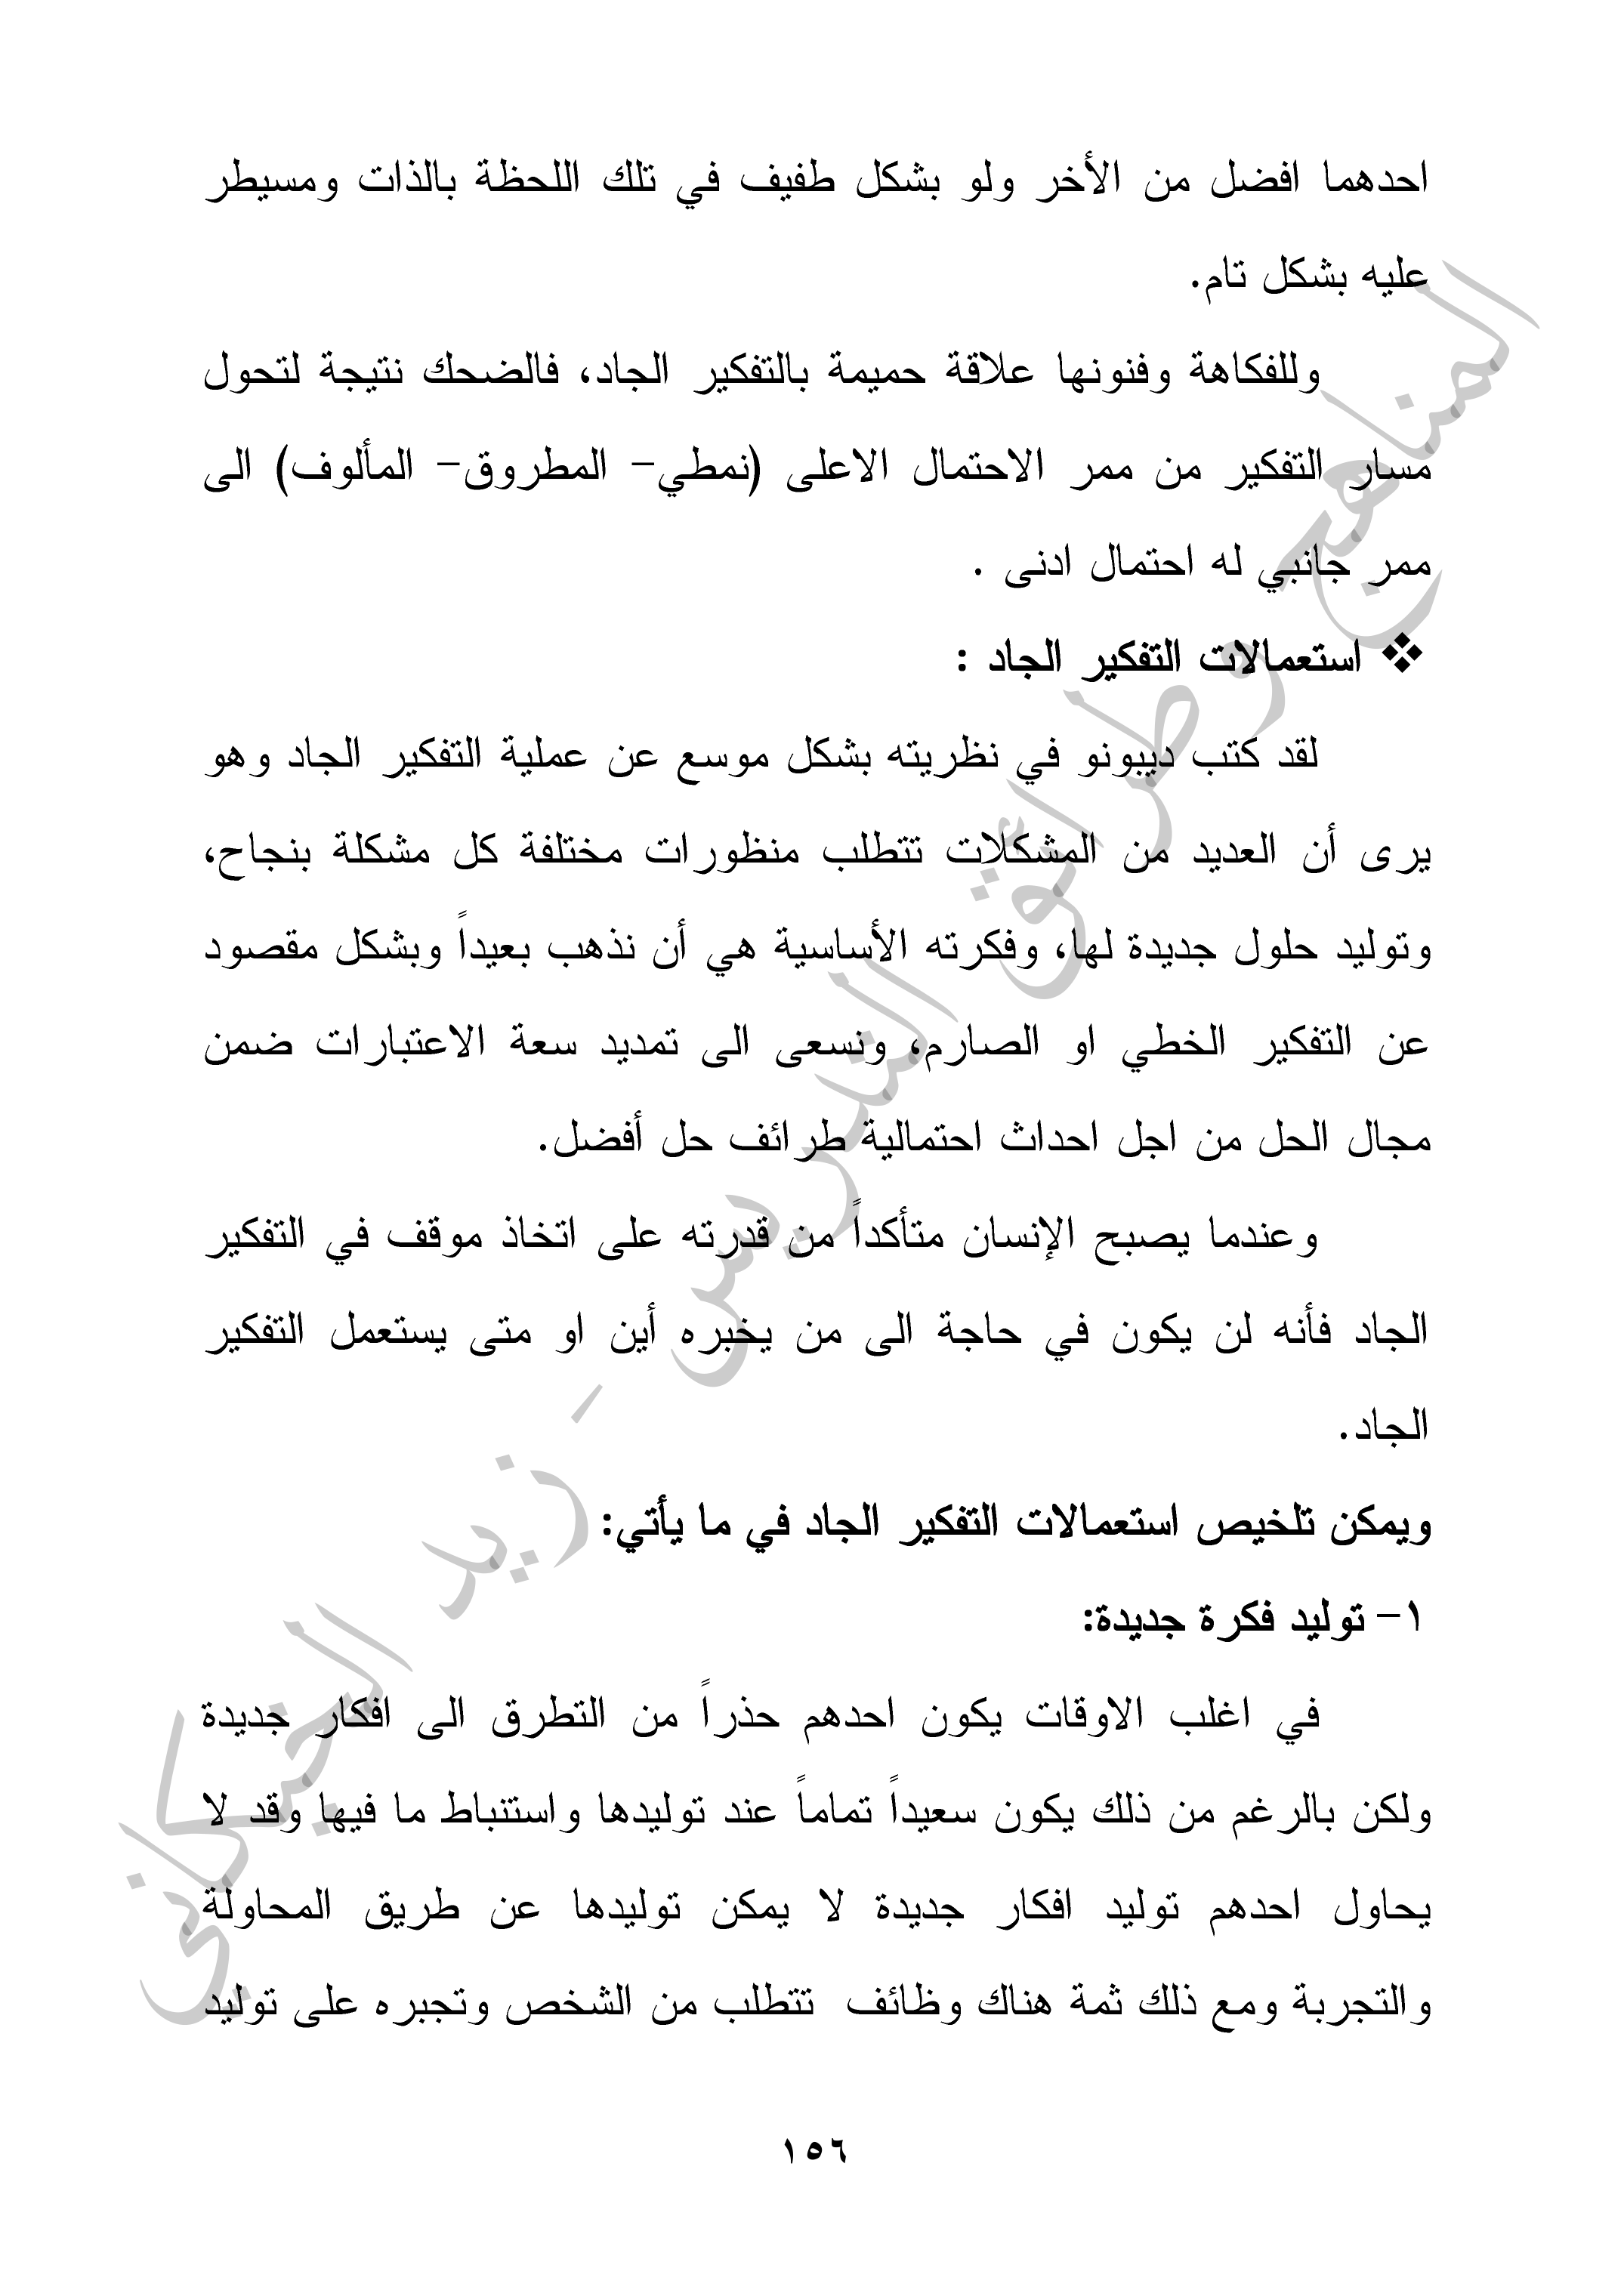 احدهما افضل من الأخر ولو بشكل طفيف في تلك اللحظة بالذات ومسيطر
عليه بشكل تام.
وللفكاهة وفنونها علاقة حميمة بالتفكير الجاد، فالضحك نتيجة لتحول
مسار التفكير من ممر الاحتمال الاعلى (نمطي- المطروق- المألوف) الى
ممر جانبي له احتمال ادنى .
❖ استعمالات التفكير الجاد :
لقد كتب ديبونو في نظريته بشكل موسع عن عملية التفكير الجاد وهو
يرى أن العديد من المشكلات تتطلب منظورات مختلفة كل مشكلة بنجاح،
وتوليد حلول جديدة لها، وفكرته الأساسية هي أن نذهب بعيداً وبشكل مقصود
عن التفكير الخطي او الصارم، ونسعى الى تمديد سعة الاعتبارات ضمن
مجال الحل من اجل احداث احتمالية طرائف حل أفضل.
وعندما يصبح الإنسان متأكداً من قدرته على اتخاذ موقف في التفكير
الجاد فأنه لن يكون في حاجة الى من يخبره أين او متى يستعمل التفكير
الجاد.
ويمكن تلخيص استعمالات التفكير الجاد في ما يأتي:
١- توليد فكرة جديدة:
في اغلب الاوقات يكون احدهم حذراً من التطرق الى افكار جديدة
ولكن بالرغم من ذلك يكون سعيداً تماماً عند توليدها واستنباط ما فيها وقد لا
يحاول احدهم توليد افكار جديدة لا يمكن توليدها عن طريق المحاولة
والتجربة ومع ذلك ثمة هناك وظائف تتطلب من الشخص وتجبره على توليد
١٥٦
المناهج وطرائق التدريس - زيد الخيكاني